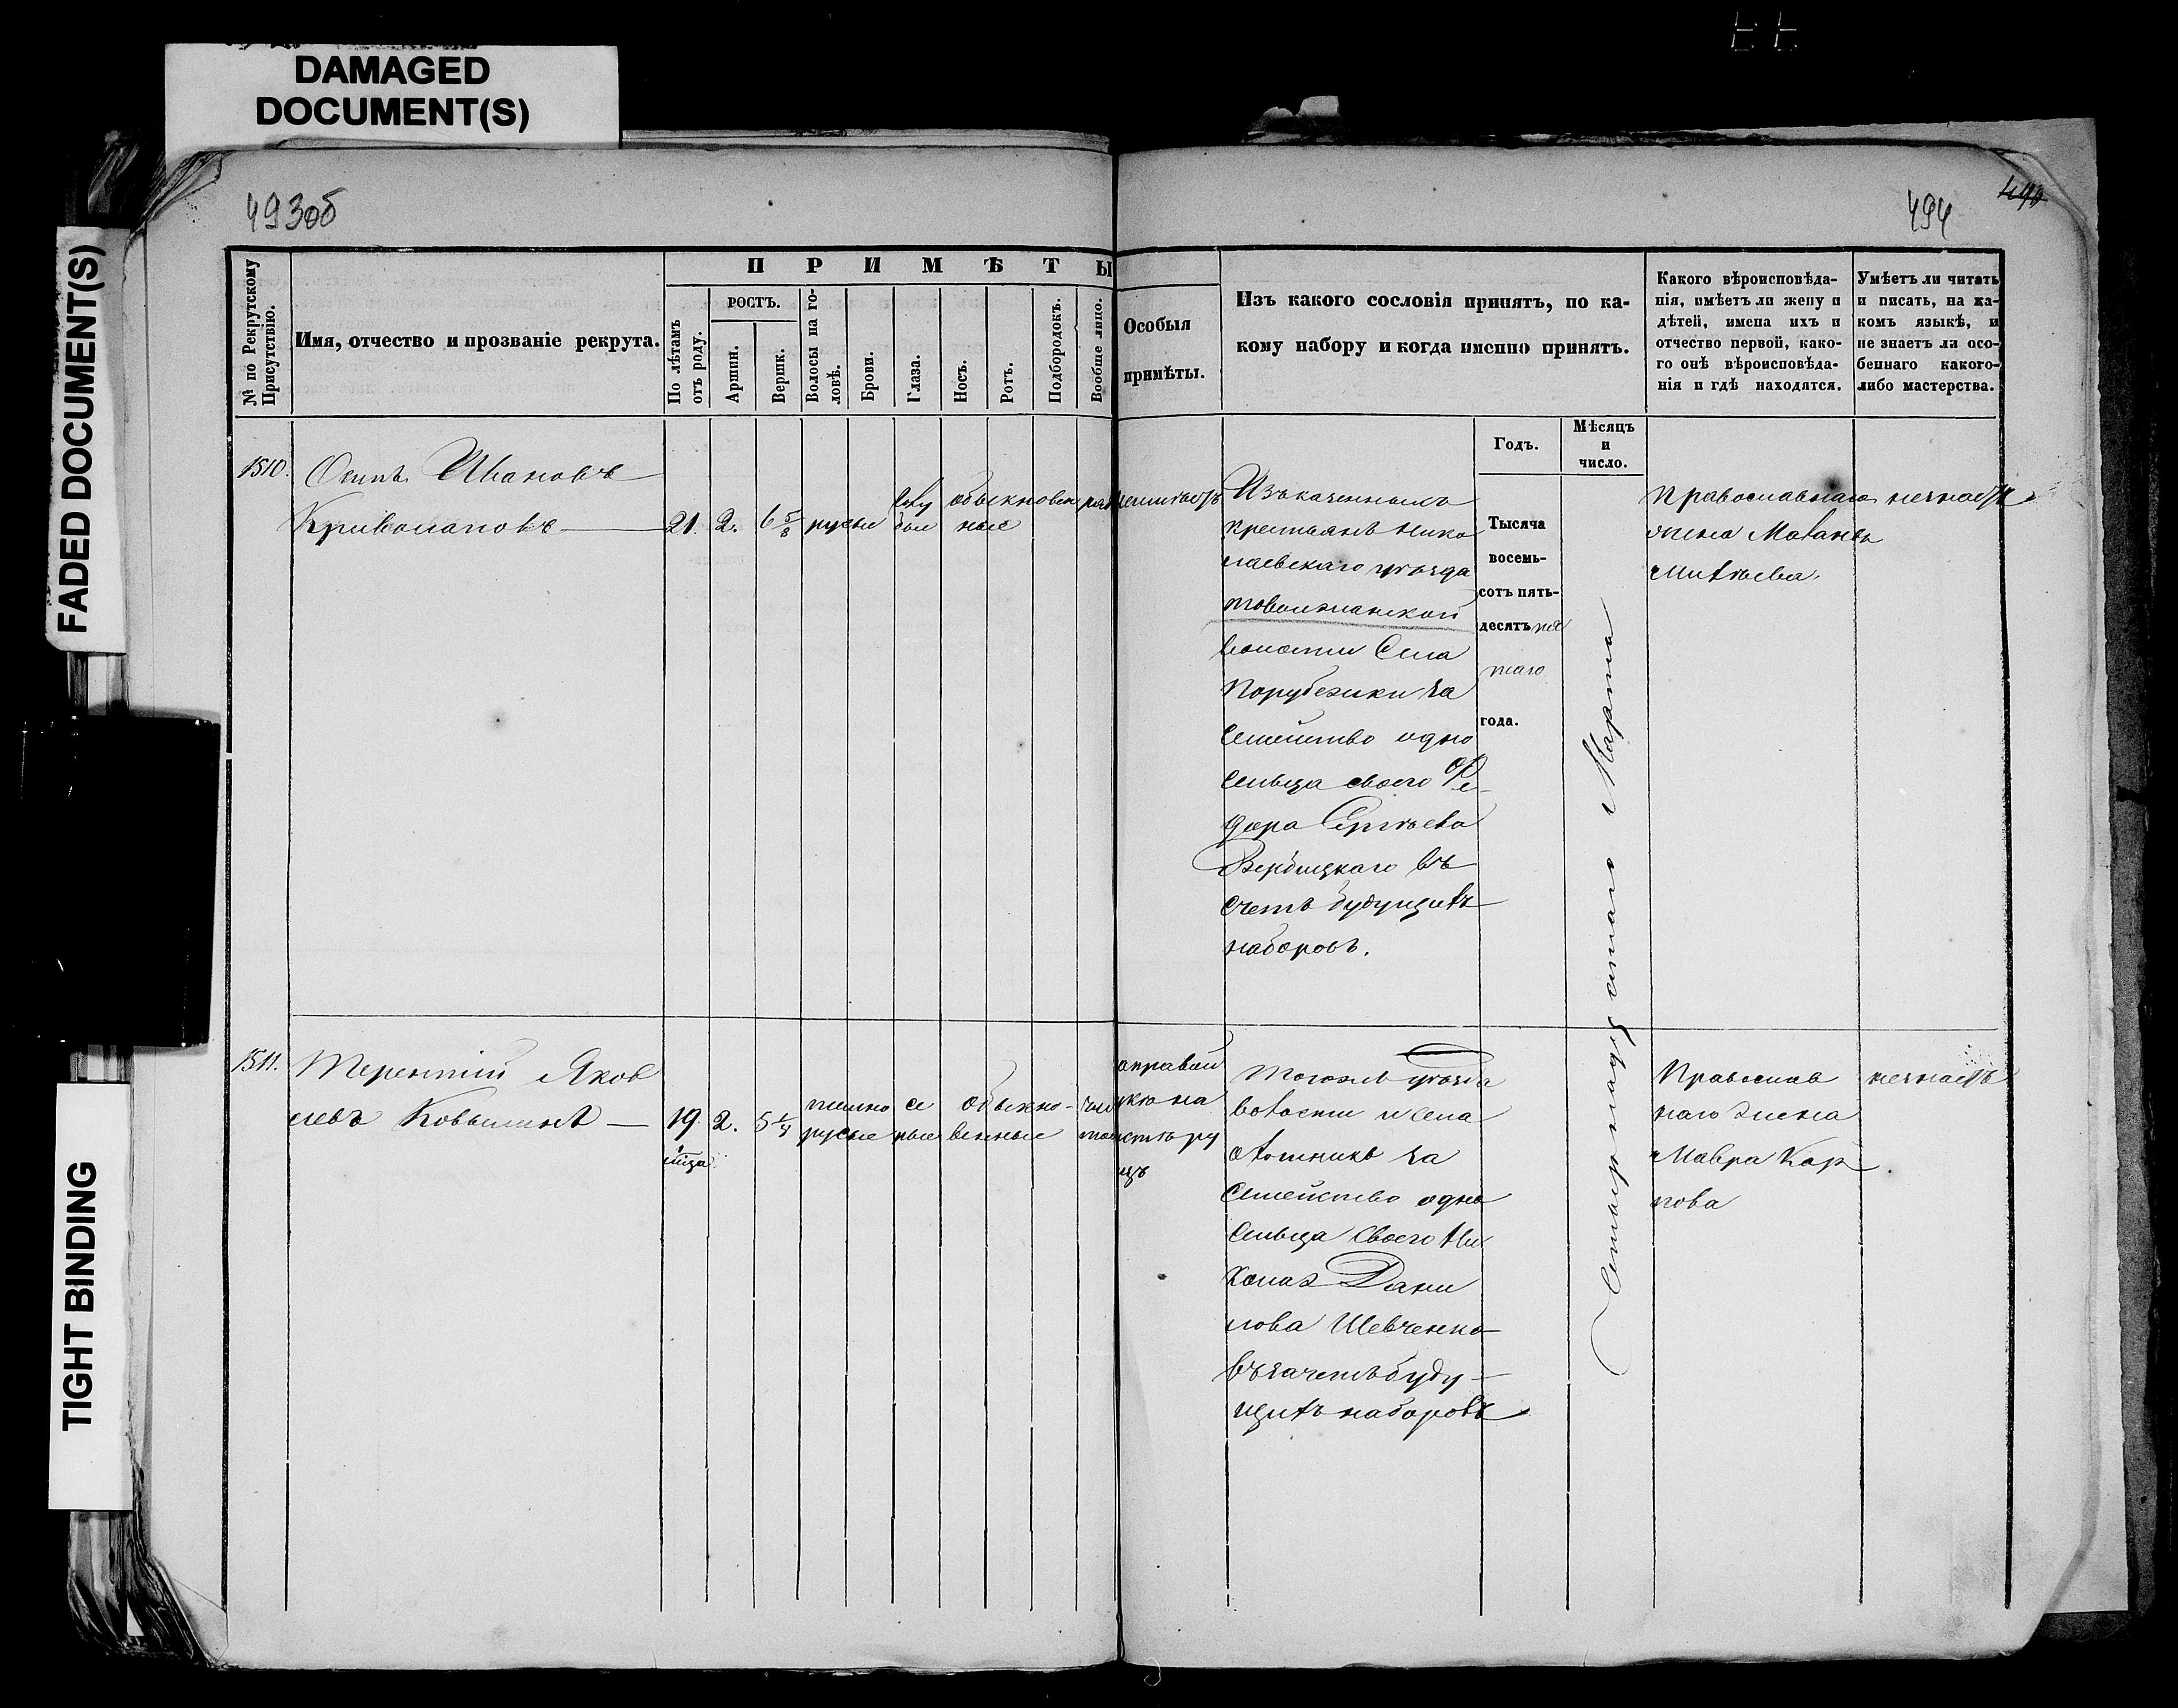 DAMAGED
DOCUMENT(S)
FADED DOCUMENT(S)
TIGHT BINDING
493об
494
490
№ по Рекрутскому
Присутствію.
Имя, отчество и прозваніе рекрута.
ПРИМѢТЫ
По лѣтамъ
отъ роду.
РОСТЪ.
Аршин.
Вершк.
Волосы на го-
ловѣ.
Брови.
Глаза.
Носъ.
Ротъ.
Подбородокъ.
Вообще лицо.
Особыя
примѣты.
Изъ какого сословія принятъ, по ка-
кому набору и когда именно принятъ.
Годъ.
Мѣсяцъ
и
число.
Какого вѣроисповѣда-
нія, имѣетъ ли жену и
дѣтей, имена ихъ и
отчество первой, како-
го онѣ вѣроисповѣда-
нія и гдѣ находятся.
Умѣетъ ли читать
и писать, на ка-
комъ языкѣ, и
не знаетъ ли осо-
беннаго какого-
либо мастерства.
1510.
Осипъ Ивановъ
Криволаповъ
21. 2. 6 5/8 русые голу
бые
обыкновен
ные
Изъ казенныхъ
крестьянъ Нико
лаевскаго уѣзда
волости Села
Порубежки за
Семейство одно
сельца своего Ѳе-
дора Сергѣева
Вербицкаго въ
счетъ будущихъ
наборовъ.
Тысяча
восемь-
сотъ пять-
десять пя
таго
года.
Четырнадцатаго Марта
Православнаго
жена
Михѣева.
незнаетъ
1511.
Терентій Яков
левъ
19. 2. 5 1/4 темно
русые
се
рые
обыкно-
венные
чис
тое
на правой
ру
Тогожъ уѣзда
волости и села
за
Семейство одно
сельца своего Ни
колая Дани
лова Шевченко
въ зачетъ буду-
щихъ наборовъ
Православ
наго жена
Мавра Кар
пова
незнаетъ